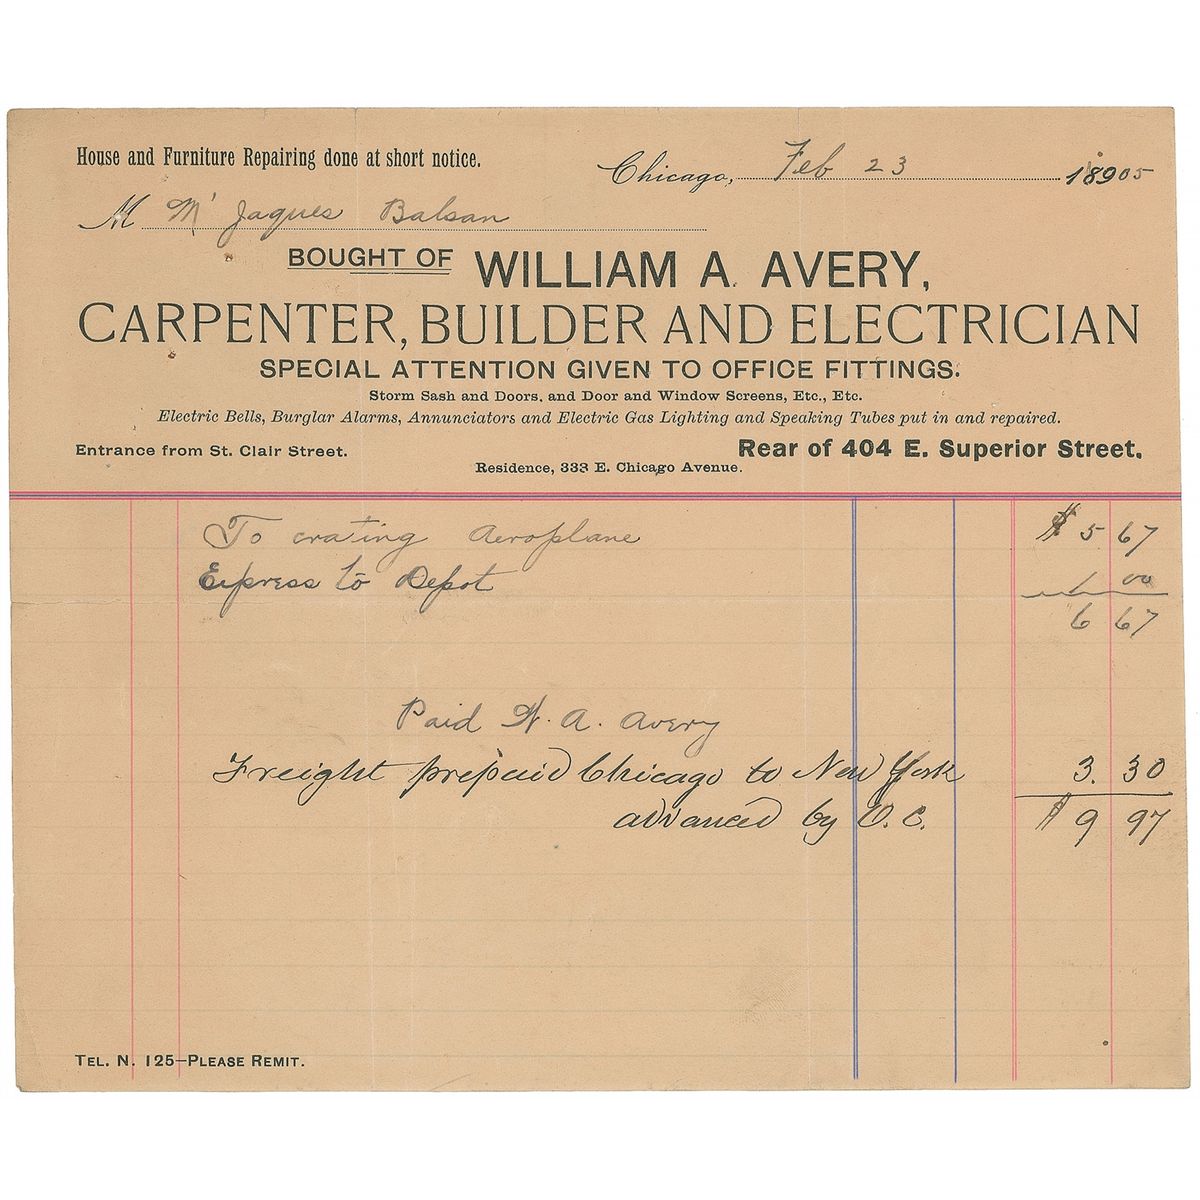 House and Furniture Repairing done at short notice.
Chicago, Feb 23 18905
M Mr Jaques Balsan
BOUGHT OF WILLIAM A. AVERY,
CARPENTER, BUILDER AND ELECTRICIAN
SPECIAL ATTENTION GIVEN TO OFFICE FITTINGS.
Storm Sash and Doors, and Door and Window Screens, Etc., Etc.
Electric Bells, Burglar Alarms, Annunciators and Electric Gas Lighting and Speaking Tubes put in and repaired.
Entrance from St. Clair Street. Rear of 404 E. Superior Street.
Residence, 333 E. Chicago Avenue.
To crating Aeroplane $ 5 67
Express to Depot 1 00
6 67
Paid W. A. Avery
Freight prepaid Chicago to New York 3. 30
advanced by O. C. $ 9 97
TEL. N. 125—PLEASE REMIT.